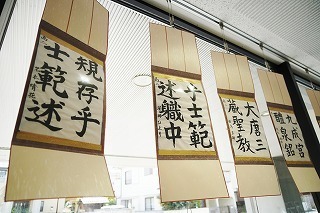 規存乎
士範述
乎士範
述職中
大唐三
蔵聖教
九成宮
醴泉銘